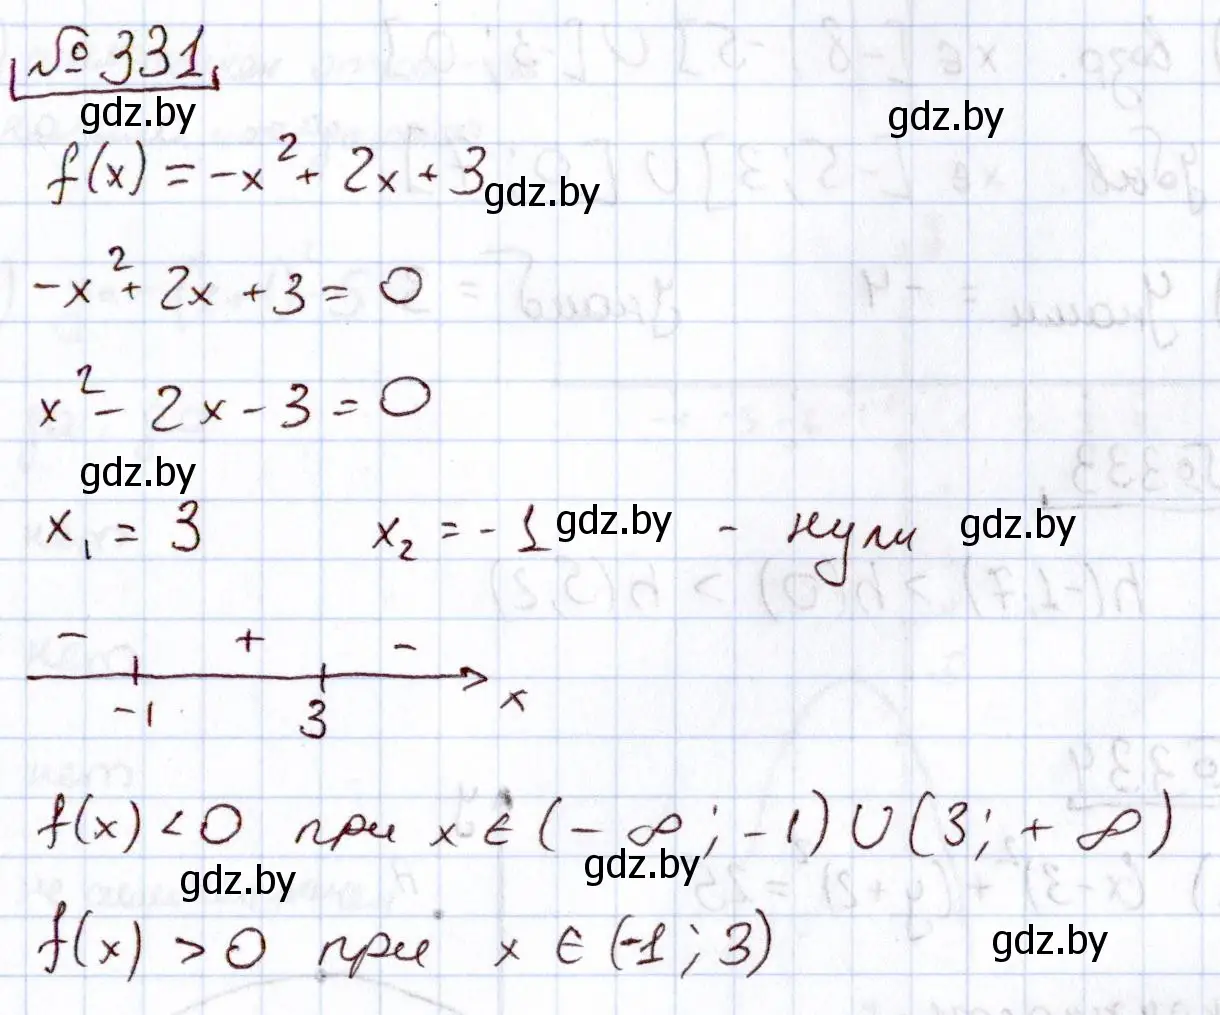 №331
gdz.by
gdz.by
f(x) = -x² + 2x + 3
gdz.by
-x² + 2x + 3 = 0
x² - 2x - 3 = 0
gdz.by
x₁ = 3 x₂ = -1 gdz.by - нули gdz.by
- + -
-1 3 x
f(x) < 0 при x ∈ (-∞; -1) ∪ (3; +∞)
gdz.by gdz.by
f(x) > 0 при x ∈ (-1; 3)
gdz.by